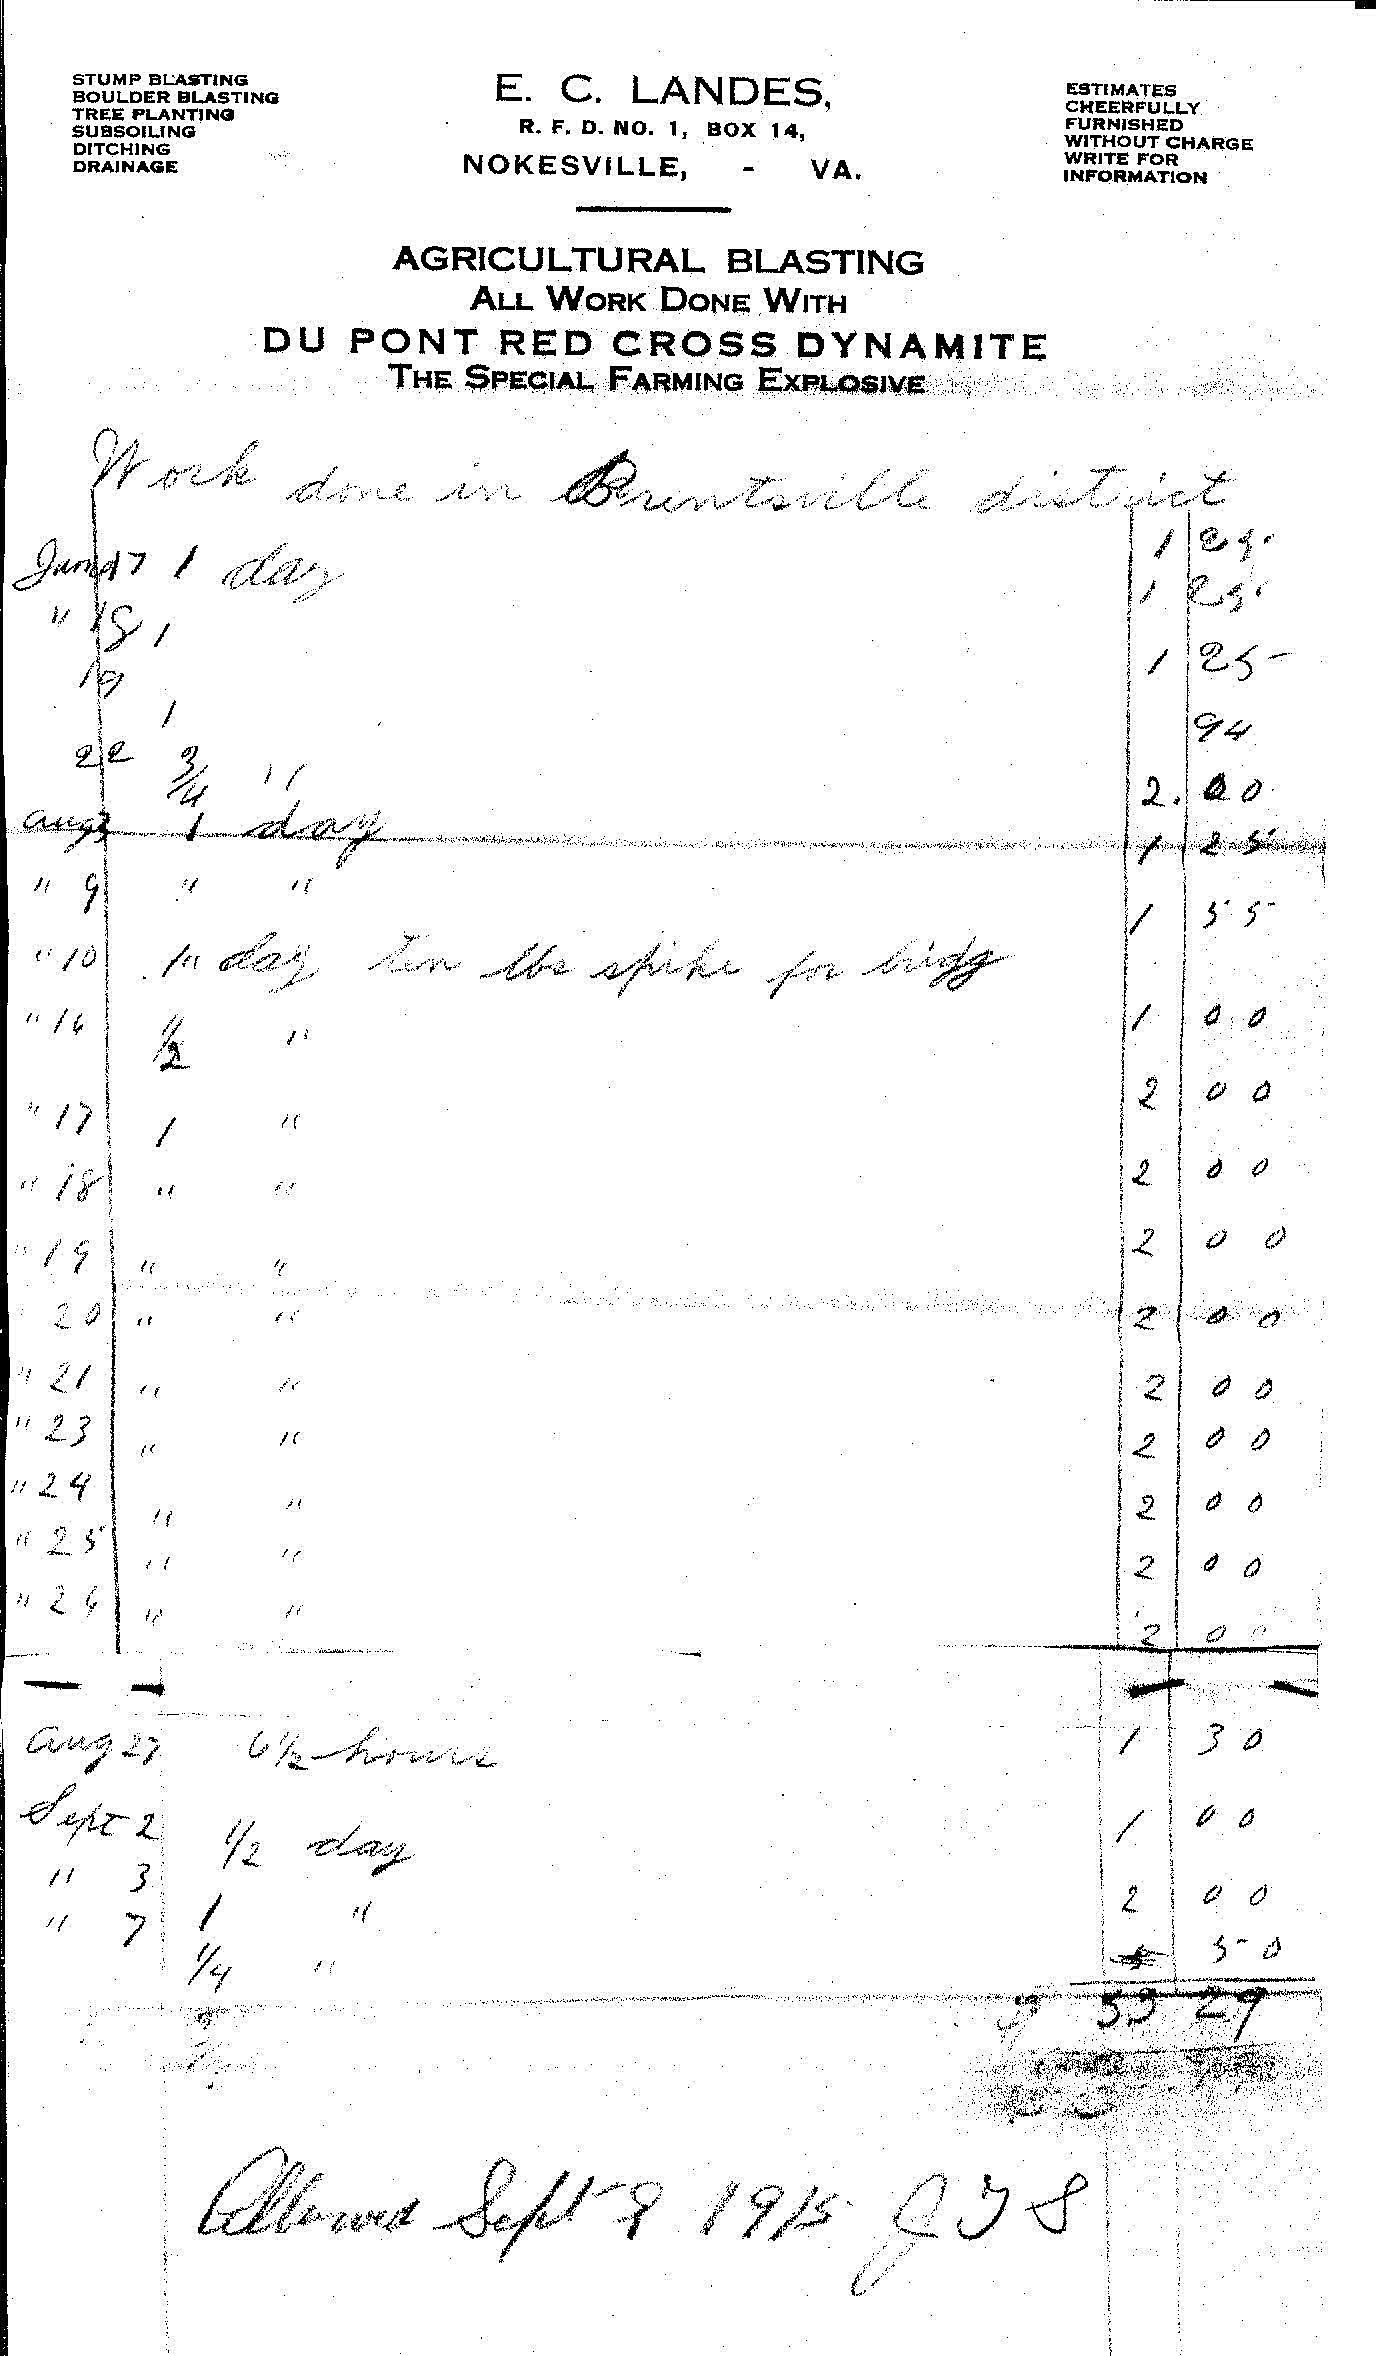 STUMP BLASTING
BOULDER BLASTING
TREE PLANTING
SUBSOILING
DITCHING
DRAINAGE
E. C. LANDES,
R. F. D. NO. 1, BOX 14,
NOKESVILLE, - VA.
ESTIMATES
CHEERFULLY
FURNISHED
WITHOUT CHARGE
WRITE FOR
INFORMATION
AGRICULTURAL BLASTING
ALL WORK DONE WITH
DU PONT RED CROSS DYNAMITE
THE SPECIAL FARMING EXPLOSIVE
Work done in Brentsville district
17 1 day 1 25
" 18 1 1 25
19 1 1 25
22 3/4 " 94
Aug 3 1 day 2.00
" 9 " " 1 25
" 10 1 " day ten lbs spike for 1 55
" 16 1/2 " 1 00
" 17 1 " 2 00
" 18 " " 2 00
" 19 " " 2 00
" 20 " " 2 00
" 21 " " 2 00
" 23 " " 2 00
" 24 " " 2 00
" 25 " " 2 00
" 26 " " 2 00
Aug 27 6 1/2 hours 1 30
Sept 2 1/2 day 1 00
" 3 1 " 2 00
" 7 1/4 " 50
33 29
Allowed Sept 8 1915 J T S